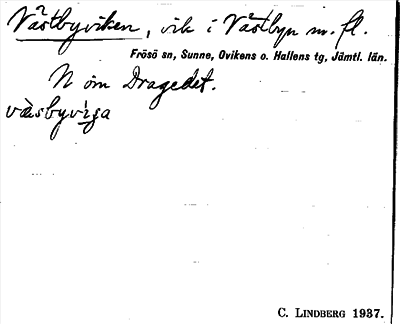 Västbyviken, vik i Västbyn m. fl.
Frösö sn, Sunne, Ovikens o. Hallens tg, Jämtl. län.
N om Dragedet.
vàsbyvi̱ga
C. LINDBERG 1937.